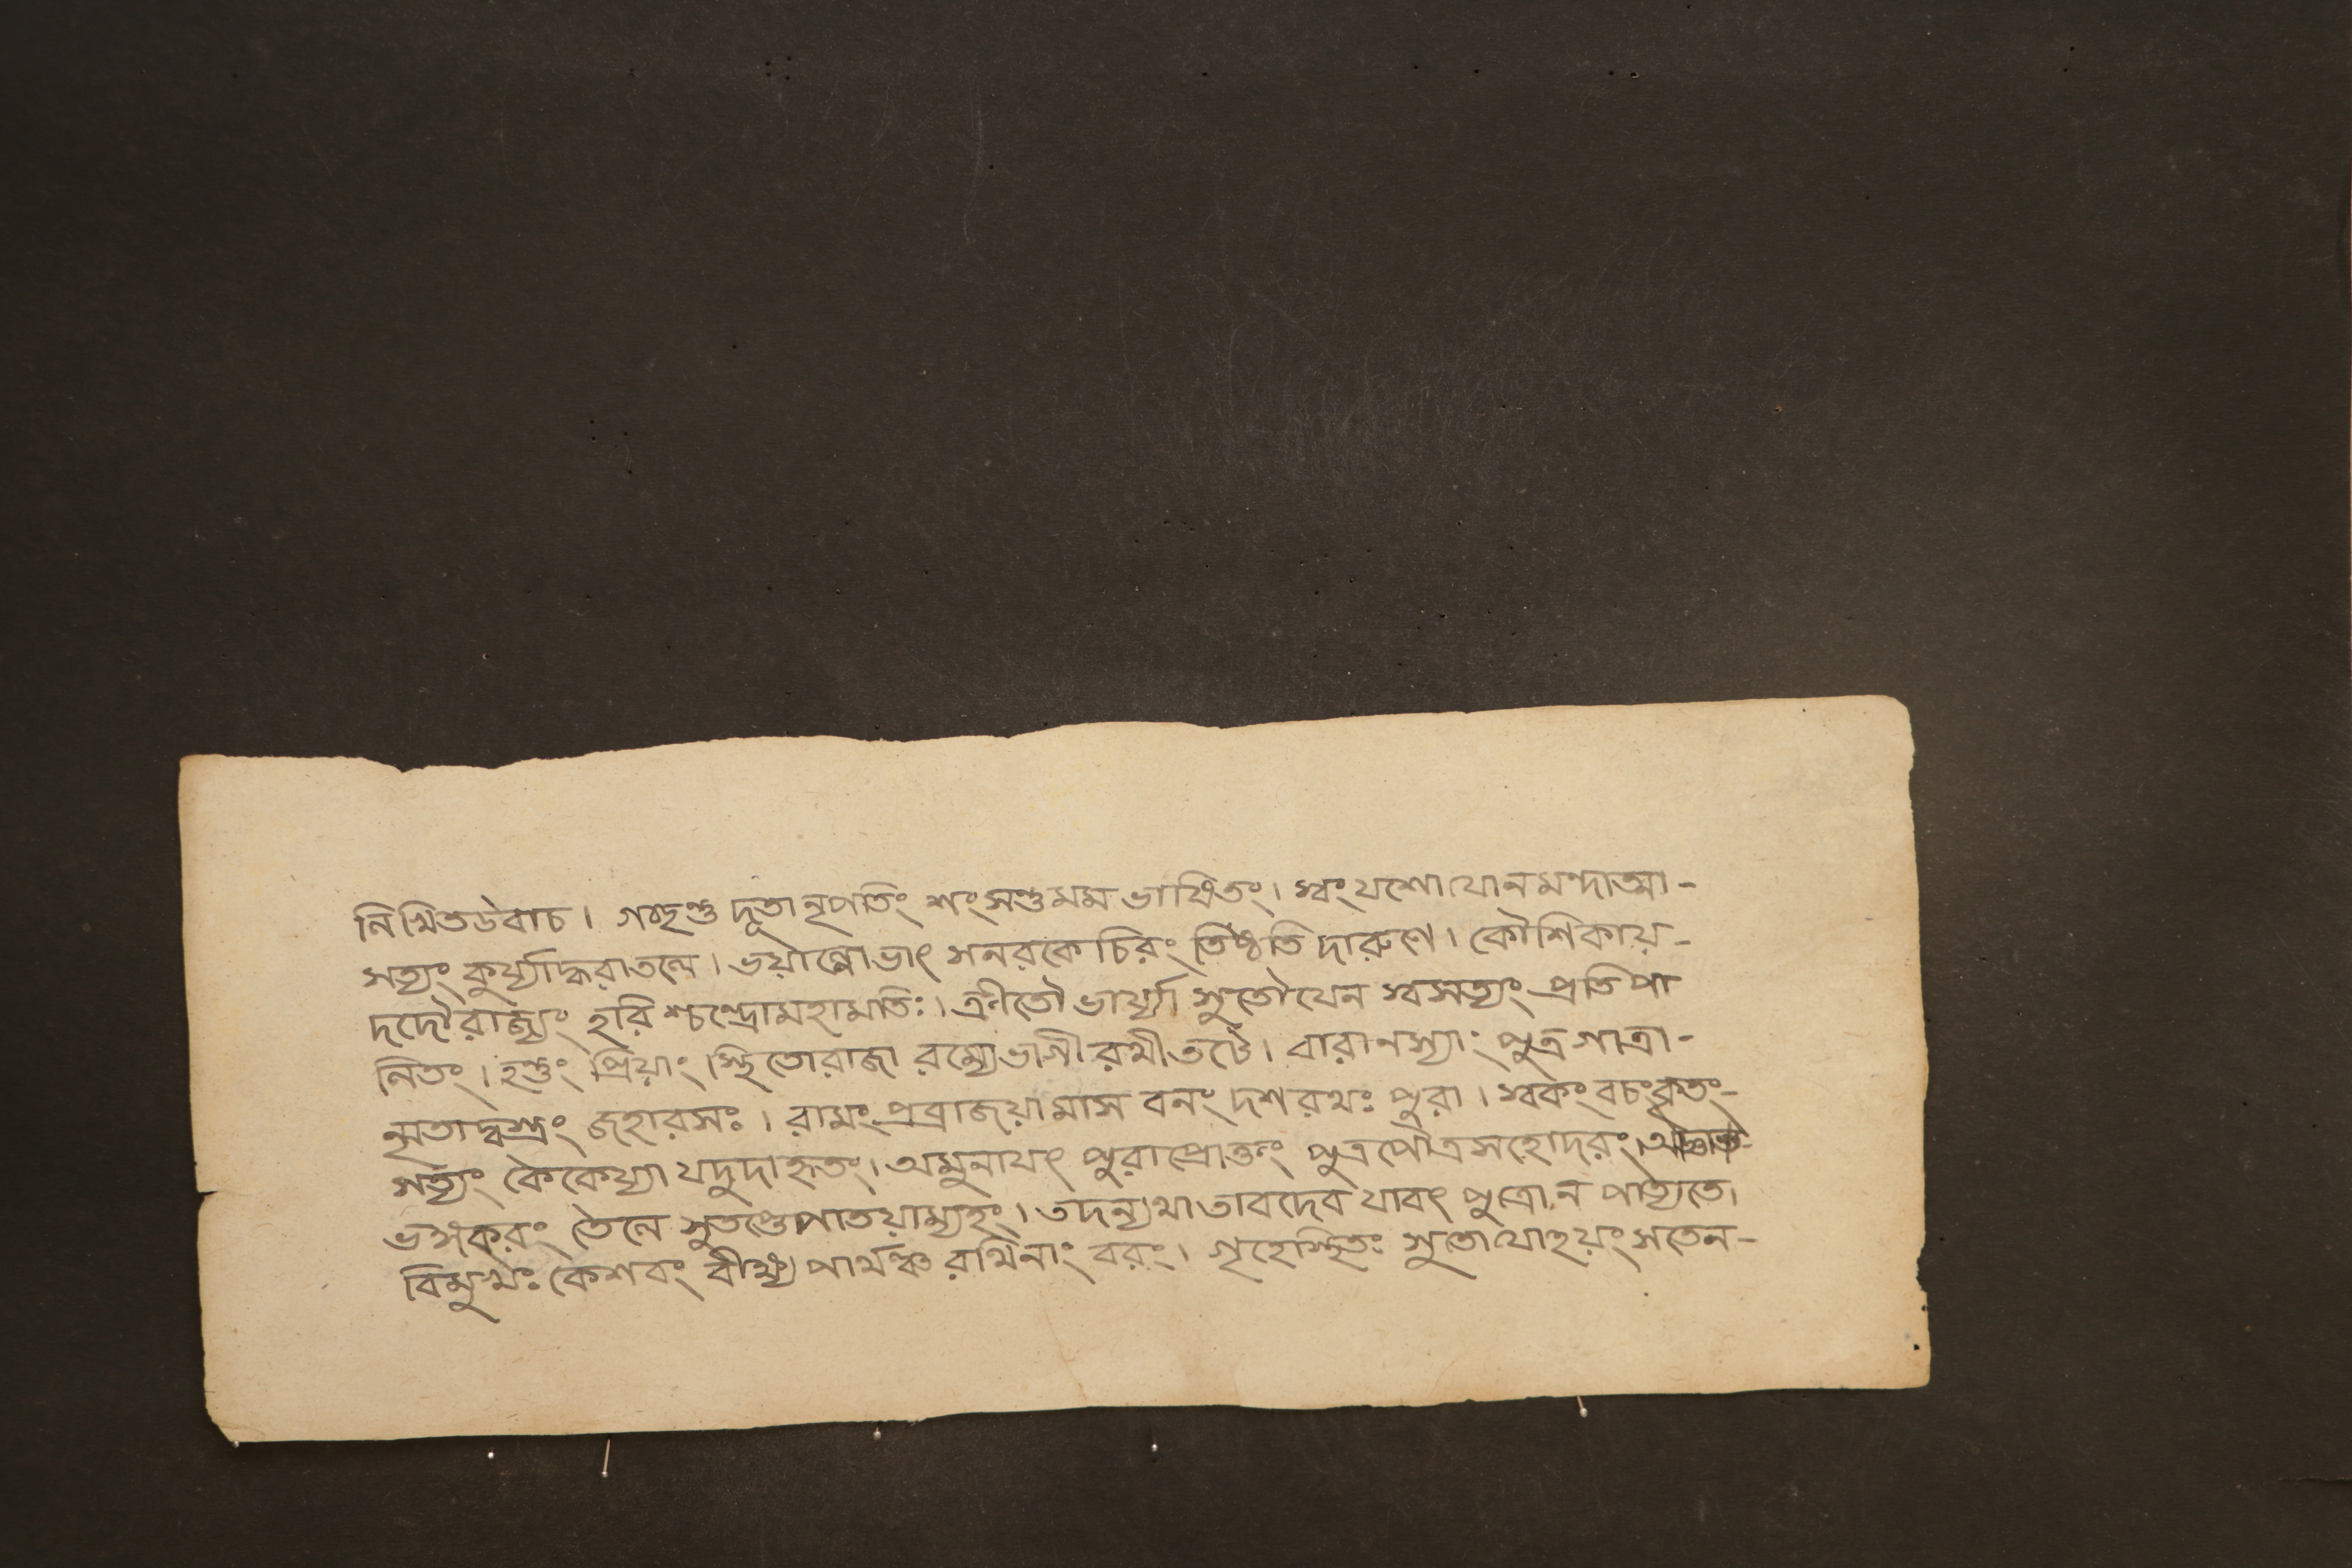 লিখিতউবাচ। গচ্ছন্তু দূতা নৃপতিং শংসন্তু মম ভাষিতং। স্বং যশো যো ন মন্দাত্মা-
সত্যং কুর্য্যাদ্ধরাতলে। ভয়াল্লোভাৎ স নরকে চিরং তিষ্ঠতি দারুণে। কৌশিকায়-
দদৌ রাজ্যং হরিশ্চন্দ্রো মহামতিঃ। ক্রীতৌ ভার্য্যা সুতৌ যেন স্বসত্যং প্রতিপা
লিতং। হন্তুং প্রিয়াং স্থিতো রাজা রম্যে ভাগীরথীতটে। বারানস্যাং পুত্র গাত্রা-
ন্মৃতাদ্বস্ত্রং জহার সঃ। রামং প্রব্রাজয়ামাস বনং দশরথঃ পুরা। স্বকং বচং কৃতং-
সত্যং কৈকেয়্যা যদুদাহৃতং। অমুনা যৎ পুরা প্রোক্তং পুত্র পৌত্র সহোদরং।
তৈলে সুতপ্তে পাতয়াম্যহং। তদন্যথা তাবদেব যাবৎ পুত্রো ন পাত্যতে।
বিমুখঃ কেশবং বীক্ষ্য পার্থঞ্চ রথিনাং বরং। গৃহে স্থিতঃ সুতো যোহয়ং স তেন-